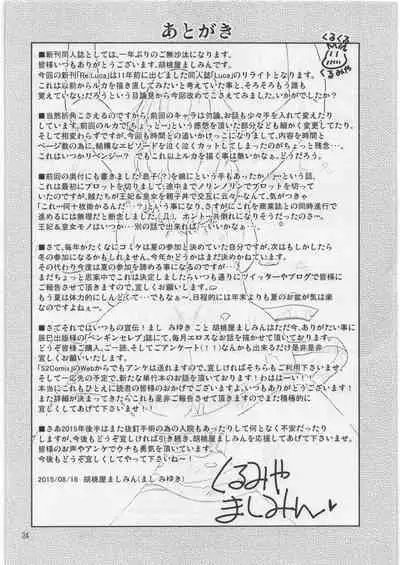 あとがき
くるくる
くるみや
■新刊同人誌としては、一年ぶりのご無沙汰になります。
皆様いつもありがとうございます。胡桃屋ましみんです。
今回の新刊「Re:Luca」は11年前に出しました同人誌「Luca」のリライトとなります。
これは以前からルカを描き直してみたいと考えていた事と、そろそろもう誰も
覚えていないだろうという目論見から今回改めてこさえてみました。いかがでしたか？
■当然折角こさえるのですから、前回のキャラは勿論、お話も少々手を入れて変えたり
しています。前回のルカで「ちょっとー」という感想を頂いた部分なども細かく変更してたり、
そして相変わらずですが、今回も時間との追いかけっこになりまして、内容と
ページ数の為に、結構なエピソードを泣く泣くカットしてしまったのがちょっと残念…、
これはいつかリベンジー？　でもこれ以上ルカを描く事は無いかなぁ。どうだろう。
■前回の奥付にも書きました「息子(？)を餌にという手もあったか！」という話、
これは最初にプロットを切りまして、途中までノリンノリンでプロットを切って
いたのですが、賊たちが王妃＆皇女を親子丼で交互に云々ーなんて、気がつきゃ
「これ一何十枚掛かるんだ…？」という事になり、さすがにこれを商業誌との同時進行で
進めるには無理だと断念しました。(;_;)　ホント一共倒れになりそうだったのさー。
王妃＆皇女モノはいつか…別の話で出来れば…いいかなぁ。
■さて、毎年かたくなにコミケは夏の参加と決めていた自分ですが、次はもしかしたら
冬の参加になるかもしれません。今年かどうかはまだ決めかねています。
その代わり今度は夏の参加を諦める事になるのですが…、
まだちょっと思案中でこれは決定しましたらいつも通りにツイッターやブログで皆様に
ご報告させて頂きますので、どうぞ宜しくお願いします。
もう夏は体力的にしんどくて…でもなぁ～、日程的には年末よりも夏のお盆が気は楽
なのですよねー。
■さてそれではいつもの宣伝！まし　みゆき　こと　胡桃屋ましみんはただ今、ありがたい事に
辰巳出版様の「ペンギンセレブ」誌にて、毎月エロスなお話を描かせて頂いております。
どうぞ皆様ご購入、ご一読、そしてご感想アンケート（！！）なんかも出来るだけ是非是非
宜しくお願いいたします。
「S2Comix」のWebからでもアンケは送れますので、宜しければそちらもご利用下さいませ。
そして一応先の予定で、新たな単行本のお話を頂いております！わはははーい！！
本当にこれもひとえに読者の皆様のおかげでございますよ。いつもありがとうございます！
また詳細が決まってきたらこれも是非ご報告させて頂きますのでまた積極的に
宜しくしてあげて下さいませー！！
■さあ2015年後半はまた抜釘手術の為の入院もあったりして何となく不安だったり
しますが、今後もどうぞ宜しければ引き続き、胡桃屋ましみんを応援してあげて下さいませ。
皆様のお声やアンケでウチも勇気を頂いています。
今後もどうぞ宜しくしてやって下さいね～！
2015/08/16　胡桃屋ましみん(まし みゆき)
くるみや
ましみん
34